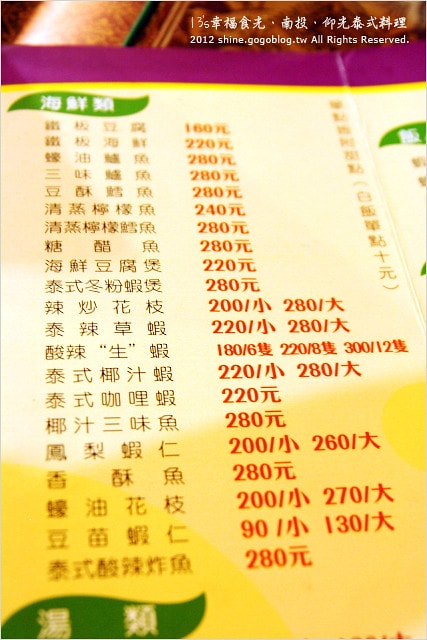 13's幸福食光、南投、仰光泰式料理
2012 shine.gogoblog.tw All Rights Reserved.
海鮮類
鐵板豆腐 160元
鐵板海鮮 220元
蠔油鱸魚 280元
三味鱸魚 280元
豆酥鱈魚 280元
清蒸檸檬魚 240元
清蒸檸檬鱈魚 280元
糖醋魚 280元
海鮮豆腐煲 220元
泰式冬粉蝦煲 280元
辣炒花枝 200/小 280/大
泰辣草蝦 220/小 280/大
酸辣“生”蝦 180/6隻 220/8隻 300/12隻
泰式椰汁蝦 220/小 280/大
泰式咖哩蝦 220元
椰汁三味魚 280元
鳳梨蝦仁 200/小 260/大
香酥魚 280元
蠔油花枝 200/小 270/大
豆苗蝦仁 90/小 130/大
泰式酸辣炸魚 280元
湯類
飯
(白飯單點十元)